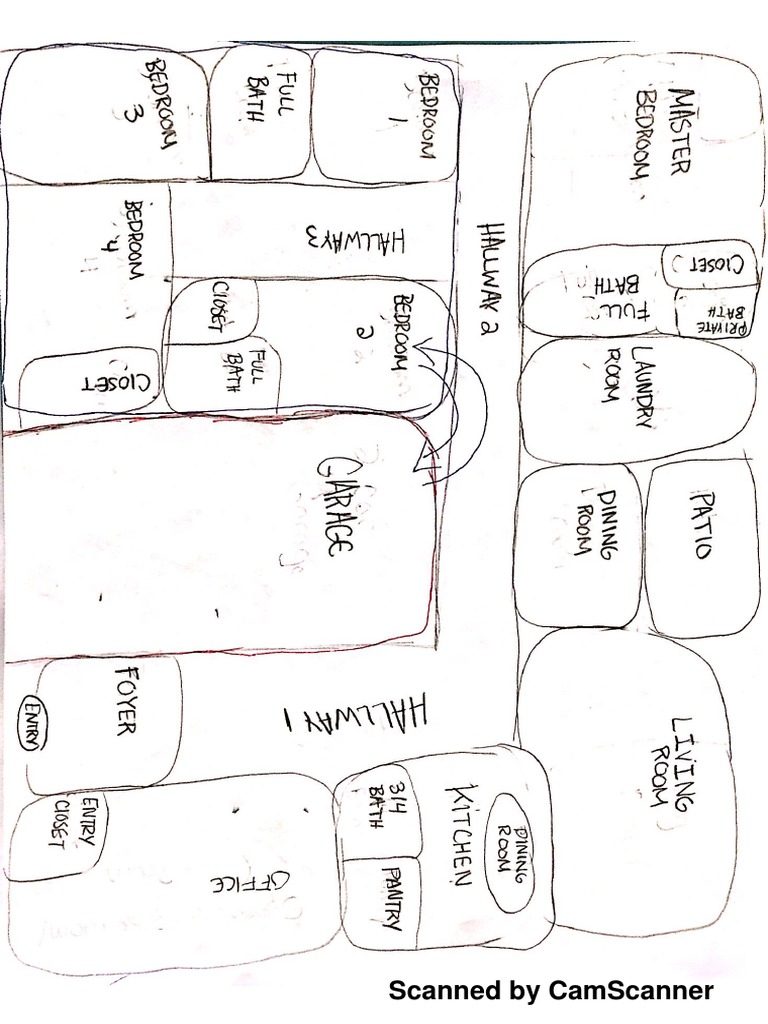 BEDROOM
3
FULL
BATH
BEDROOM
1
MASTER
BEDROOM
BEDROOM
4
HALLWAY 3
HALLWAY 2
CLOSET
PRIVATE
BATH
FULL
BATH
CLOSET
FULL
BATH
BEDROOM
2
CLOSET
LAUNDRY
ROOM
GARAGE
DINING
ROOM
PATIO
FOYER
ENTRY
HALLWAY 1
LIVING
ROOM
ENTRY
CLOSET
OFFICE
3/4
BATH
PANTRY
KITCHEN
DINING
ROOM
Scanned by CamScanner